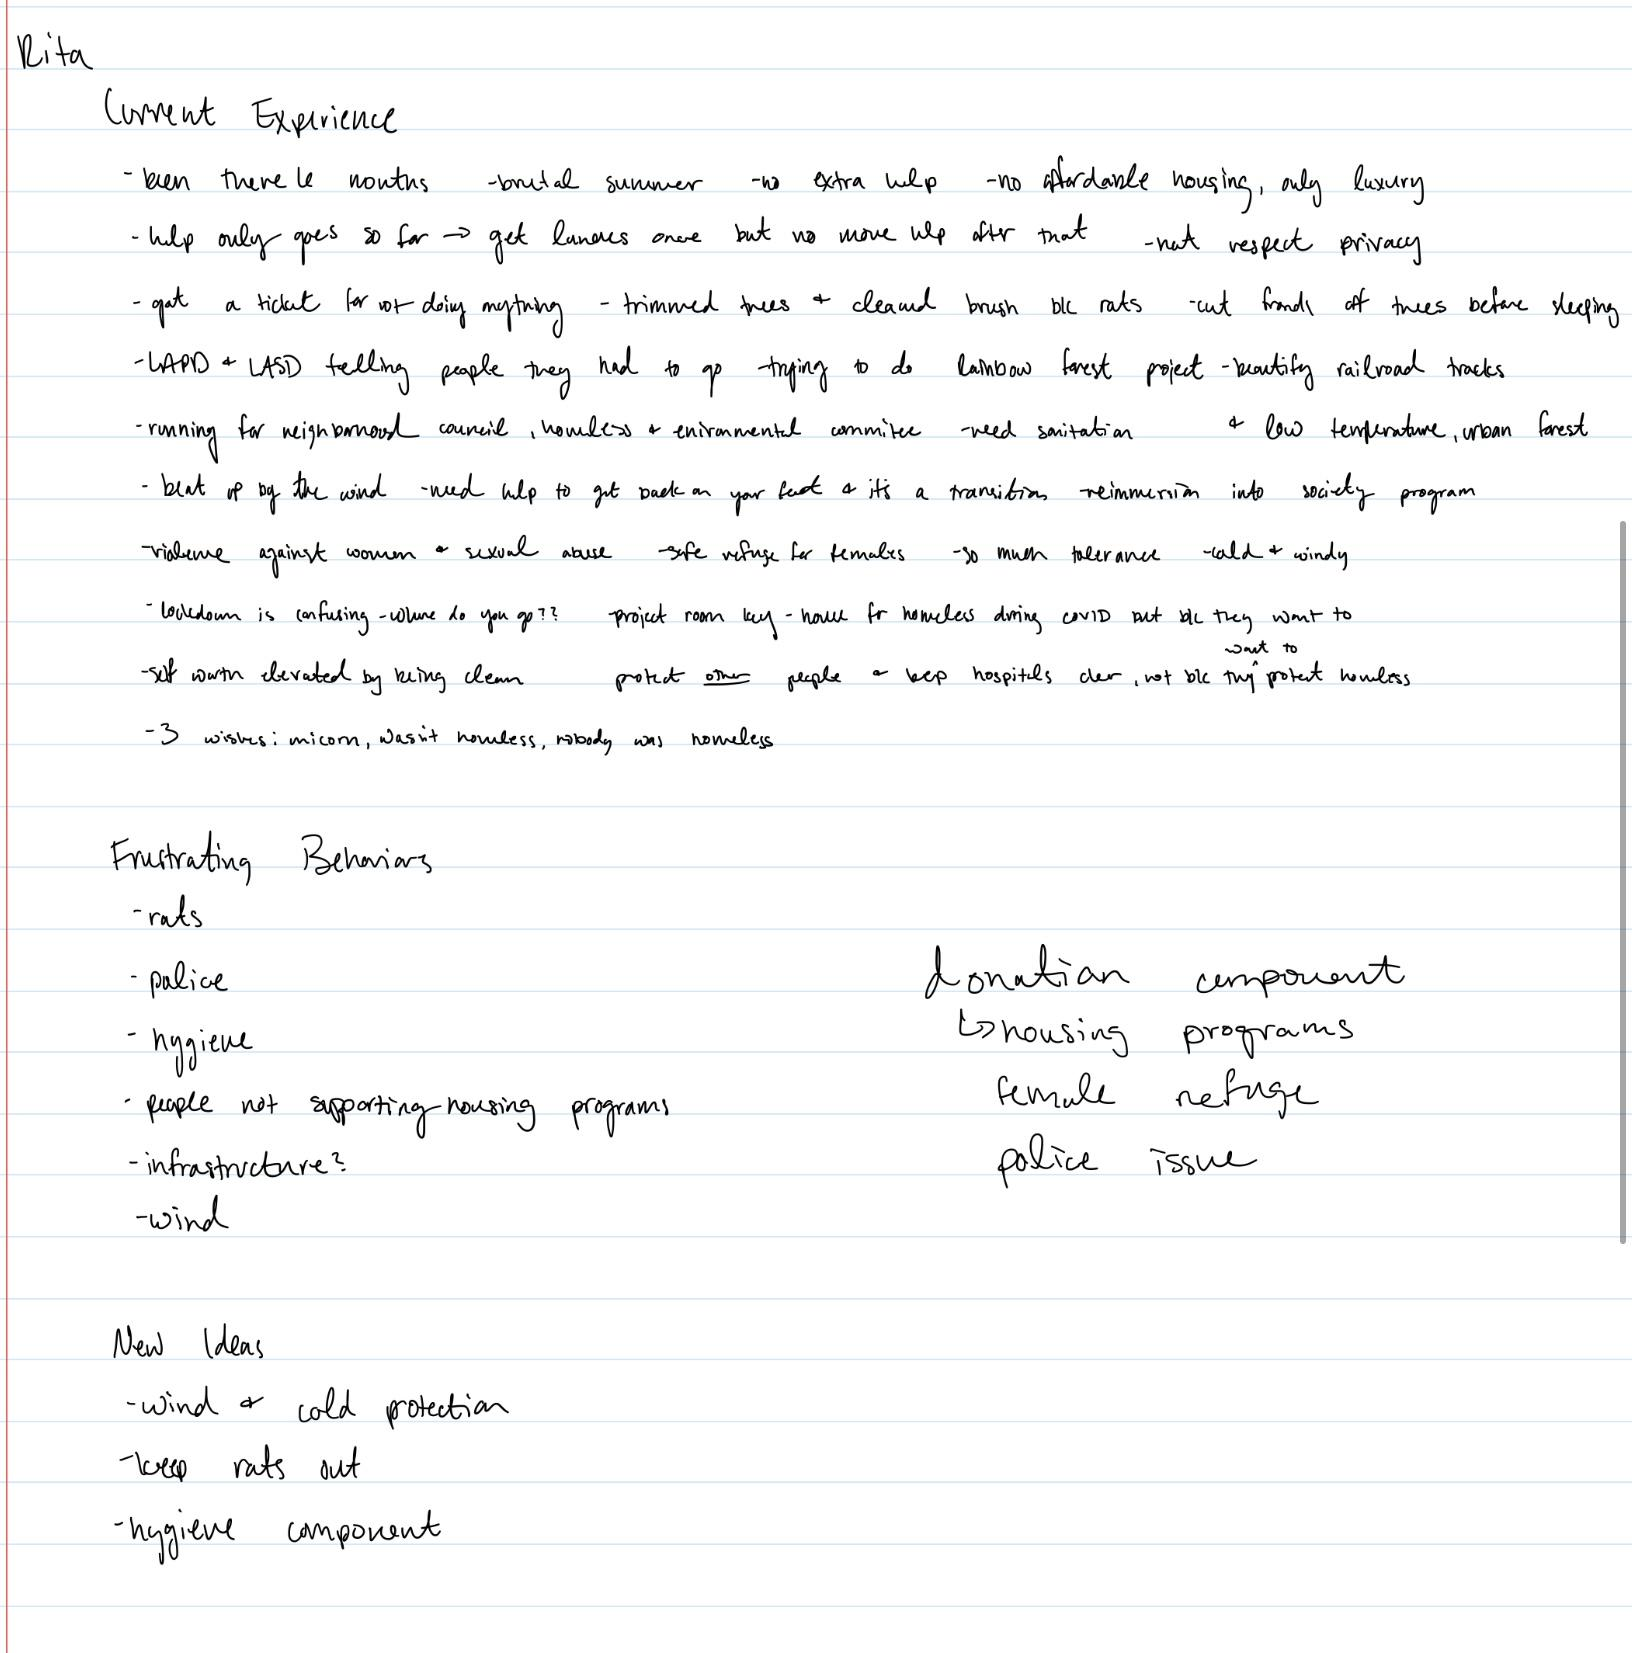 Rita
Current Experience
- been there 6 months -brutal summer -no extra help -no affordable housing, only luxury
- help only goes so far → get lunches once but no more help after that -not respect privacy
- got a ticket for not doing anything - trimmed trees & cleared brush b/c rats -cut fronds off trees before sleeping
-LAPD & LASD telling people they had to go -trying to do rainbow forest project -beautify railroad tracks
-running for neighborhood council, homeless & enironmental commitee -need sanitation & low temperature, urban forest
- beat up by the wind -need help to get back on your feet & it's a transition -reimmersion into society program
-violence against women & sexual abuse -safe refuge for females -so much tolerance -cold & windy
- lockdown is confusing -where do you go?? -project room key - house for homeless during COVID but b/c they want to
-self worth elevated by being clean protect other people & keep hospitals clear, not b/c they want to protect homeless
-3 wishes: unicorn, wasn't homeless, nobody was homeless
Frustrating Behaviors
-rats
- police
- hygiene
- people not supporting housing programs
-infrastructure?
-wind
donation component
↳housing programs
female refuge
police issue
New Ideas
-wind & cold protection
-keep rats out
-hygiene component